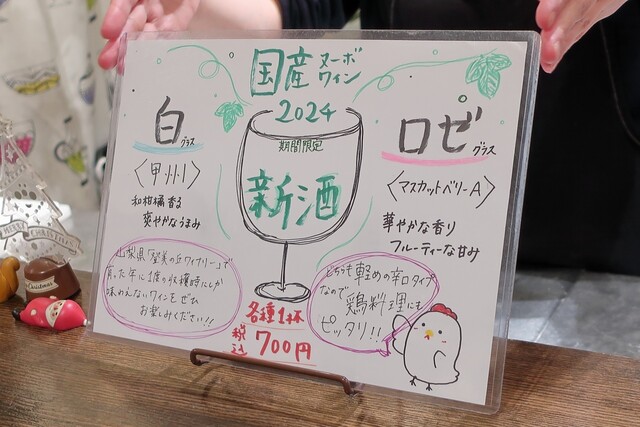 国産 ヌーボ
ワイン
2024
期間限定
新酒
白 グラス
〈甲州〉
和柑橘香る
爽やかなうまみ
山梨県「登美の丘ワイナリー」で
買った年に1度の収穫時にしか
味わえないワインをぜひ
お楽しみください!!
ロゼ グラス
〈マスカットベリーA〉
華やかな香り
フルーティーな甘み
どちらも軽めの辛口タイプ
なので 鶏料理にも
ピッタリ!!
各種1杯
税込 700円
MERRY CHRISTMAS
Christmas